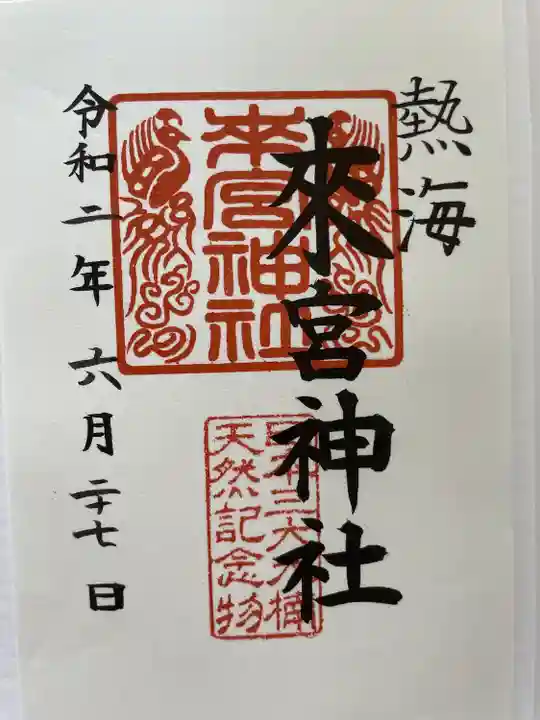 熱海
來宮神社
來宮神社
日本三大大楠
天然記念物
令和二年 六月二十七日